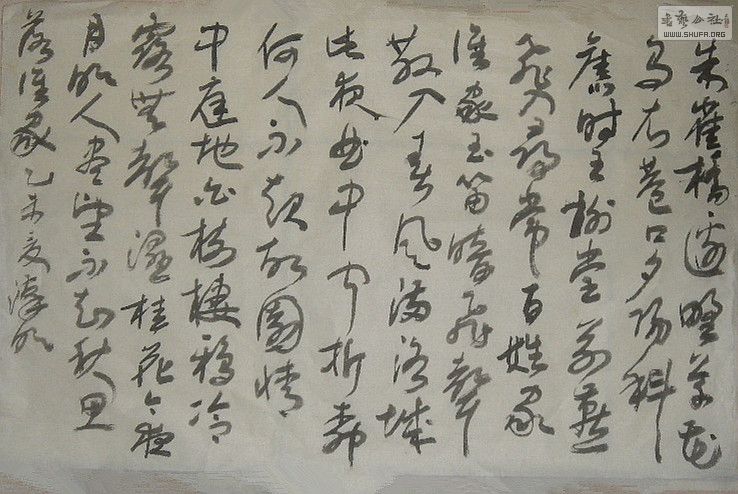 朱雀橋邊野草花
烏衣巷口夕陽斜
舊時王榭堂前燕
飛入尋常百姓家
誰家玉笛暗飛聲
散入春風滿洛城
此夜曲中聞折柳
何人不起故園情
中庭地白樹棲鴉冷
露無聲濕桂花今夜
月明人盡望不知秋思
落誰家乙未夏
書藝公社
WWW.SHUFA.ORG